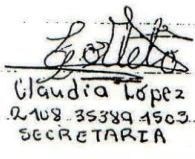 Claudia López
2108 35389 1503
SECRETARIA